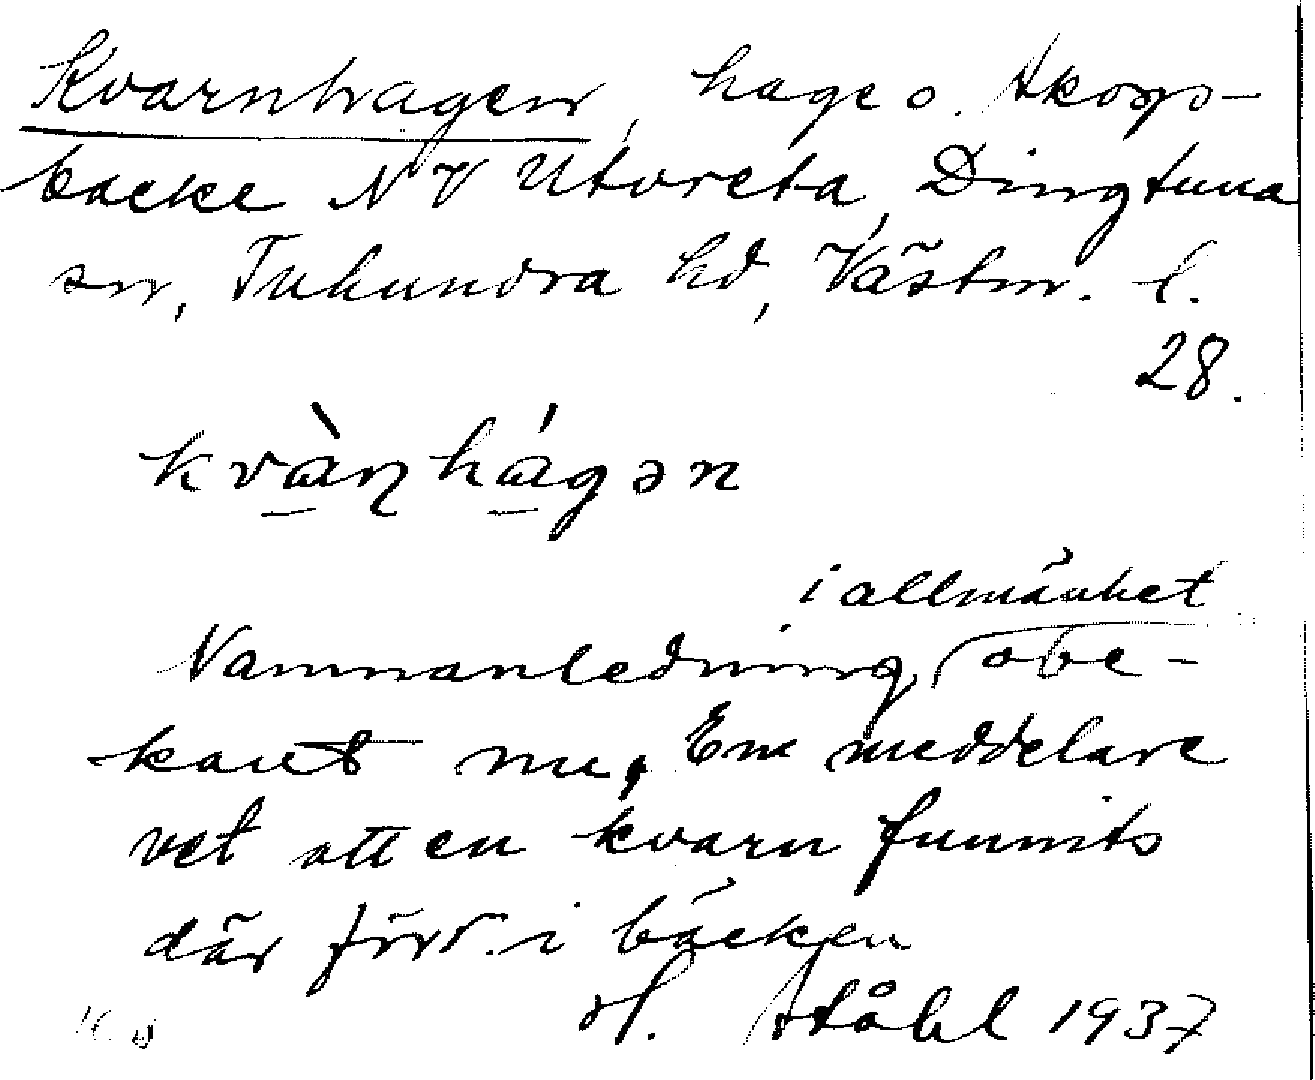 Kvarnhagen, hage o. skogs-
backe NV Utvreta, Dingtuna
sn, Tuhundra hd, Västm. l.
28.
kvàṇhágən
i allmänhet
Namnanledning obe-
kant nu. En meddelare
vet att en kvarn funnits
där förr i bäcken
H. Ståhl 1937